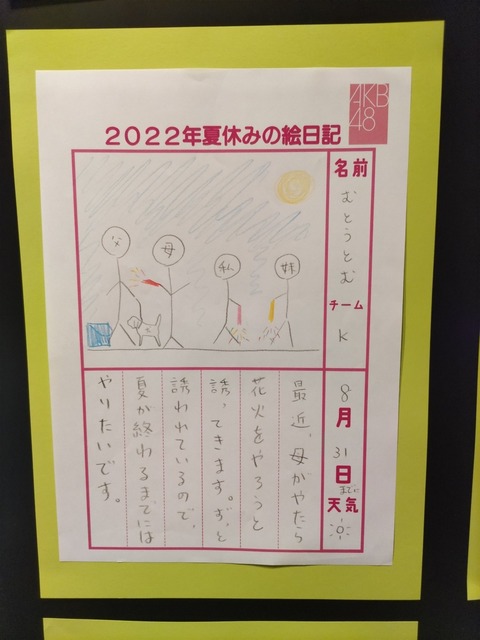 AKB
48
2022年夏休みの絵日記
名前
むとうとむ
チーム
K
父
母
私
妹
8
月
31
日
までに
天気
最近、母がやたら
花火をやろうと
誘ってきます。ずっと
誘われているので、
夏が終わるまでには
やりたいです。